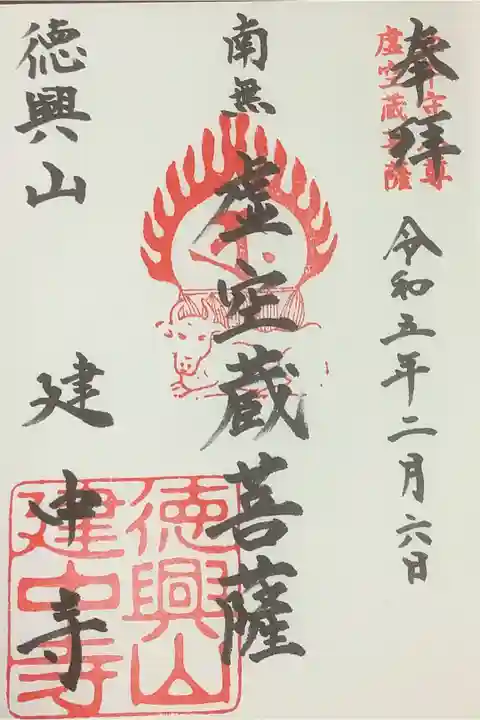 奉拝
虚空蔵菩薩
令和五年二月六日
南無
虚空蔵菩薩
徳興山
建中寺
徳興山
建中寺